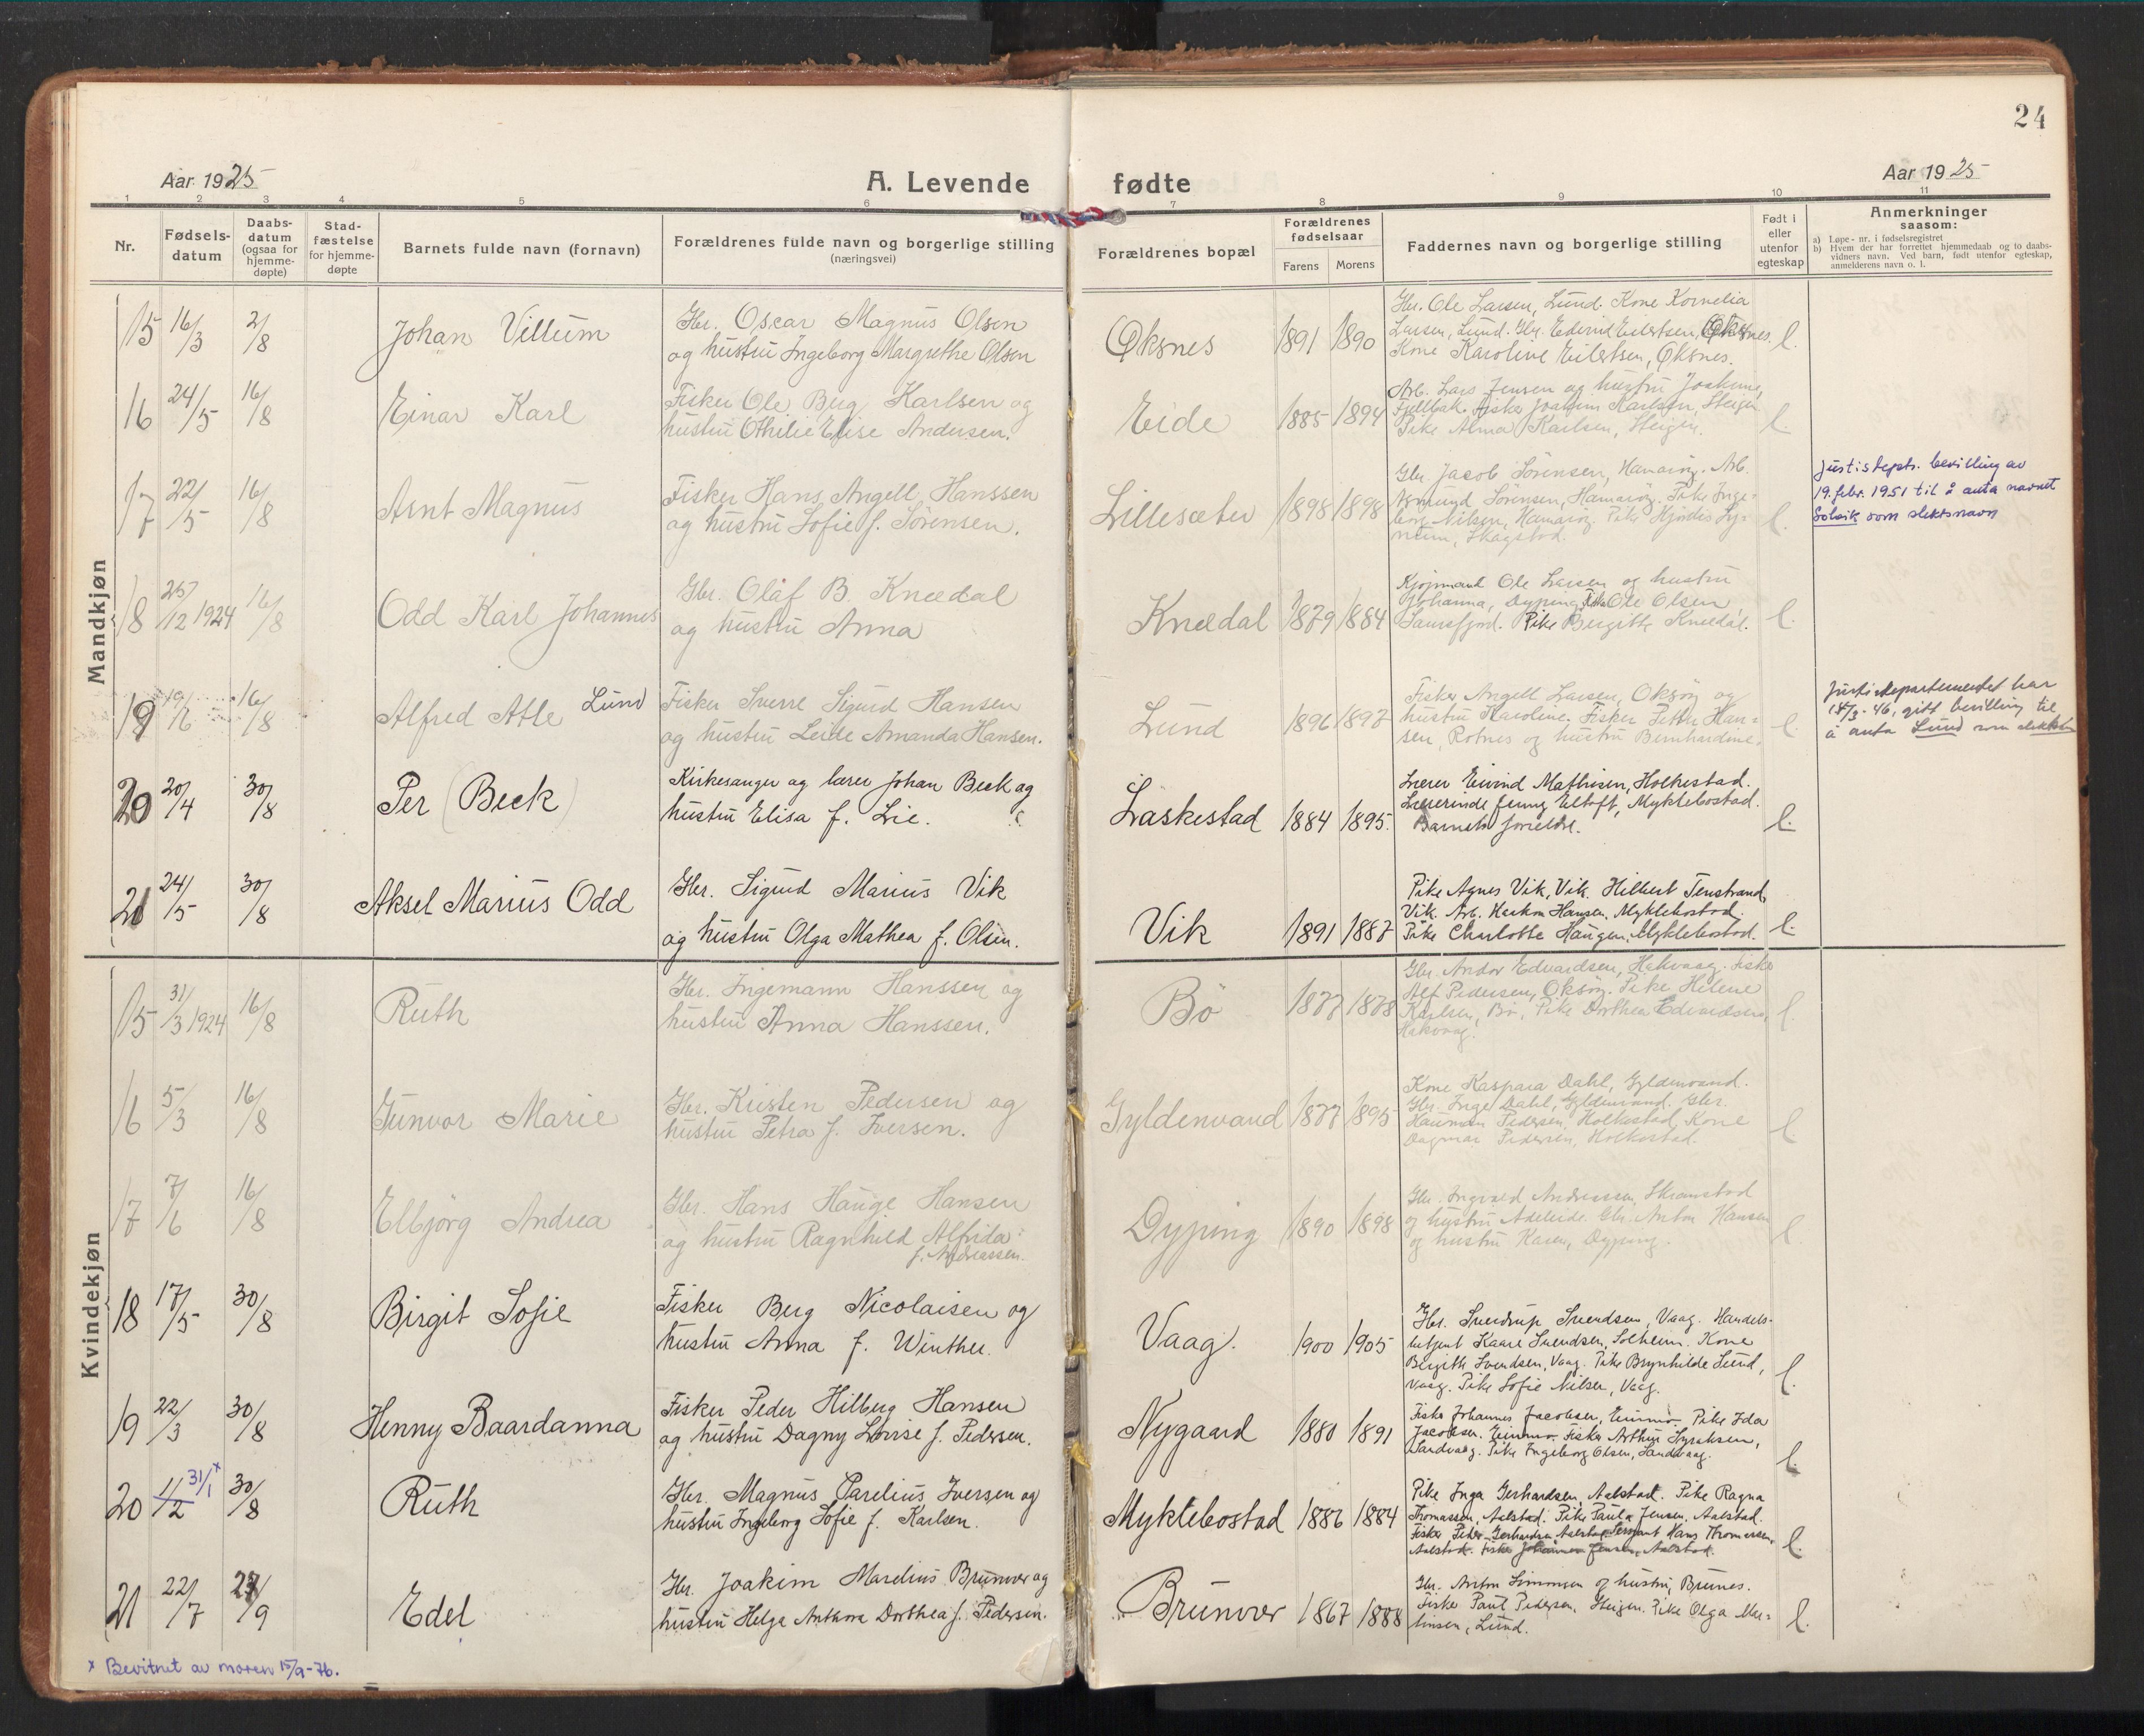 24
Aar 1925
A. Levende fødte
Aar 1925
1 2 3 4 5 6 7 8 9 10 11
Nr.
Fødsels-
datum
Daabs-
datum
(ogsaa for
hjemme-
døpte)
Stad-
fæstelse
for hjemme-
døpte
Barnets fulde navn (fornavn)
Forældrenes fulde navn og borgerlige stilling
(næringsvei)
Forældrenes bopæl
Forældrenes
fødselsaar
Farens Morens
Faddernes navn og borgerlige stilling
Født i
eller
utenfor
egteskap
Anmerkninger
saasom:
a) Løpe-nr. i fødselsregistret
b) Hvem der har forrettet hjemmedaab og to daabs-
vidners navn. Ved barn, født utenfor egteskap,
anmelderens navn o. l.
Mandkjøn
15 16/3 2/8 Johan Villum
Gbr. Oscar Magnus Olsen
og hustru Ingeborg Margrethe Olsen
Øksnes 1891 1890
Gbr. Ole Larsen, Lund. Kone Kornelia
Larsen, Lund. Gbr. Edvind Eilertsen, Øksnes.
Kone Karoline Eilertsen, Øksnes.
l.
16 24/5 16/8 Einar Karl
Fisker Ole Berg Karlsen og
hustru Othilie Elise Andersen.
Eide 1885 1894
Arb. Lars Jensen og hustru
Fisker Joakim Karlsen, Steigen.
Pike Alma Karlsen, Steigen.
l.
17 22/5 16/8 Arnt Magnus
Fisker Hans Angell Hanssen
og hustru Sofie f. Sørensen.
Lillesæter 1898 1898
Gbr. Jacob Sørensen, Hamarøy. Arb.
Asmund Sørensen, Hamarøy. Pike Inge-
borg Nilsen, Hamarøy. Pike Hjørdis
Skagstad.
l.
Justisdepts. bevilling av
19. febr. 1951 til å anta navnet
Solvik som slektsnavn
18 25/12 1924 16/8 Odd Karl Johannes
Gbr. Olaf B. Knædal
og hustru Anna
Knædal 1879 1884
Kjøpmand Ole Larsen og hustru
Johanna, Dyping. Fisker Ole Olsen,
Pike Birgitte Knædal.
l.
19 19/6 16/8 Alfred Atle Lund
Fisker Sverre Sigurd Hansen
og hustru Leide Amanda Hansen.
Lund 1896 1897
Fisker Angell Larsen, Oksøy og
hustru Karoline. Fisker Petter Han-
sen, Rotnes og hustru Bernhardine.
l.
Justisdepartementet har
14/3-46, gitt bevilling til
å anta Lund som slektsn
20 20/4 30/8 Per (Beck)
Kirkesanger og lærer Johan Beck og
hustru Elisa f. Lie.
Laskestad 1884 1895.
Lærer Eivind Mathisen, Holkestad.
Lærerinde Jenny Eltoft, Myklebostad.
Barnets forældre.
l.
21 24/5 30/8 Aksel Marius Odd
Gbr. Sigurd Marius Vik
og hustru Olga Mathea f. Olsen.
Vik 1891 1887
Pike Agnes Vik, Vik. Hilbert Tenstrand,
Vik. Arb. Haakon Hansen, Myklebostad.
Pike Charlotte Haugen, Myklebostad.
l.
Kvindekjøn
15 31/3 1924 16/8 Ruth
Gbr. Ingemann Hanssen og
hustru Anna Hanssen.
Bø 1877 1878
Gbr. Andor Edvardsen, Hakvaag. Fisker
Alf Pedersen, Oksøy. Pike Helene
Karlsen, Bø. Pike Dorthea Edvardsen,
Hakvaag.
l.
16 5/3 16/8 Gunvor Marie
Gbr. Kristen Pedersen og
hustru Petra f. Iversen.
Gyldenvand 1877 1895
Kone Kaspara Dahl, Gyldenvand.
Gbr. Inge Dahl, Gyldenvand. Gbr.
Hauman Pedersen, Holkestad, Kone
Dagmar Pedersen, Holkestad.
l.
17 7/6 16/8 Elbjørg Andrea
Gbr. Hans Hauge Hansen
og hustru Ragnhild Alfrida
f. Andreassen.
Dyping 1890 1898
Gbr. Ingvald Andreassen, Skramstad
og hustru Adeleide. Gbr. Anton Hansen
og hustru Karen, Dyping.
l.
18 17/5 30/8 Birgit Sofie
Fisker Berg Nicolaisen og
hustru Anna f. Winther.
Vaag. 1900 1905
Gbr. Sverdrup Svendsen, Vaag. Handels-
betjent Kaare Svendsen, Solheim. Kone
Birgith Svendsen, Vaag. Pike Brynhilde Lund,
Vaag. Pike Sofie Nilsen, Vaag.
l.
19 22/3 30/8 Henny Baardanna
Fisker Peder Hilberg Hansen
og hustru Dagny Lovise f. Pedersen.
Nygaard 1880 1891
Fisker Johannes Jacobsen, Pike Ida
Jacobsen, Fisker Arthur Syraksen,
Sandvaag. Pike Ingeborg Olsen, Sandvaag.
l.
20 1/2 31/1 x 30/8 Ruth
Gbr. Magnus Parelius Iversen og
hustru Ingeborg Sofie f. Karlsen.
Myklebostad 1886 1884
Pike Inga Gerhardsen, Aalstad. Pike Ragna
Thomassen, Aalstad. Pike Paula Jensen, Aalstad.
Fisker Peder Gerhardsen Aalstad Sersjant Hans Thomassen,
Aalstad. Fisker Johannes Jensen, Aalstad.
l.
21 22/7 27/9 Edel
Gbr. Joakim Marelius Brunvær og
hustru Helga Antkora Dorthea f. Pedersen.
Brunvær 1867 1888
Gbr. Anton Simonsen og hustru, Brunes.
Fisker Paul Pedersen, Steigen. Pike Olga Mar-
tinsen, Lund.
l.
x Bevitnet av moren 15/9-76.